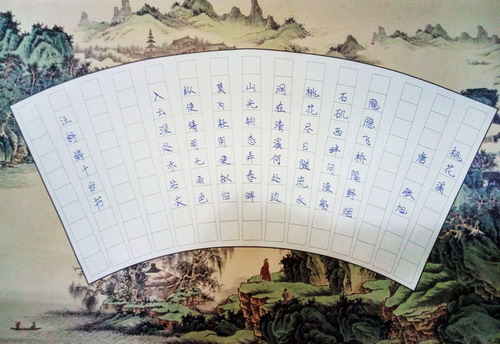 桃花溪
唐 张旭
隐隐飞桥隔野烟
石矶西畔问渔船
桃花尽日随流水
洞在清溪何处边
山光物态弄春晖
莫为轻阴便拟归
纵使晴明无雨色
入云深处亦沾衣